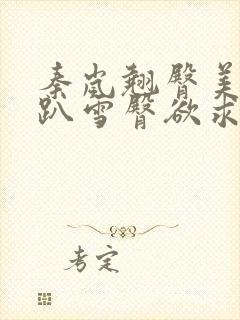 秦岚翘臀美
趴雪臀欲求
考定